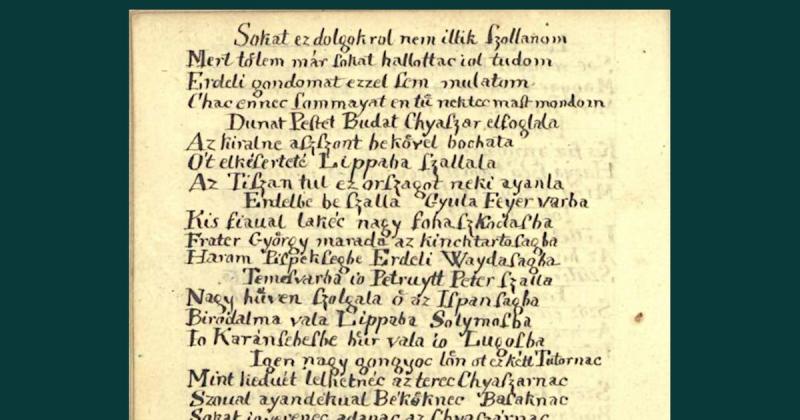 Sokat ez dolgokrol nem illik ſzollanom
Mert tőlem már ſokat hallottac iol tudom
Erdeli gondomat ezzel ſem mulatom.
Chac ennec ſommayat en tű nektec maſt mondom
Dunat Peſtet Budat Chyaſzar elfoglala
Az kiralne aſzſzont bekővel bochata
Ot elkiſertetē Lippaba ſzallala
Az Tiſzan tul ez orſzagot neki ayanla
Erdelbe be ſzalla Gyula Feyer varba
Kis fiaual lakéc nagy fohaſzkodaſba
Frater Gyōrgy marada az kinchtartoſagba
Harom Piſpekſegbe Erdeli Waydaſagba
Temeſvarba io Petruytt Peter ſzalla
Nagy hűven ſzolgala ő az Iſpanſagba
Birodalma vala Lippaba Solymoſba
Io Karánſebeſbe hūr vala io Lugoſba
Igen nagy gongyoc lőn ot ez kétt Tūtornac
Mint kedvét lelhetnéc az terec Chyaſzarnac
Szoual ayandekual Békőknec Baſaknac
Sokat igyrenec adanac az Chyaſzárnac